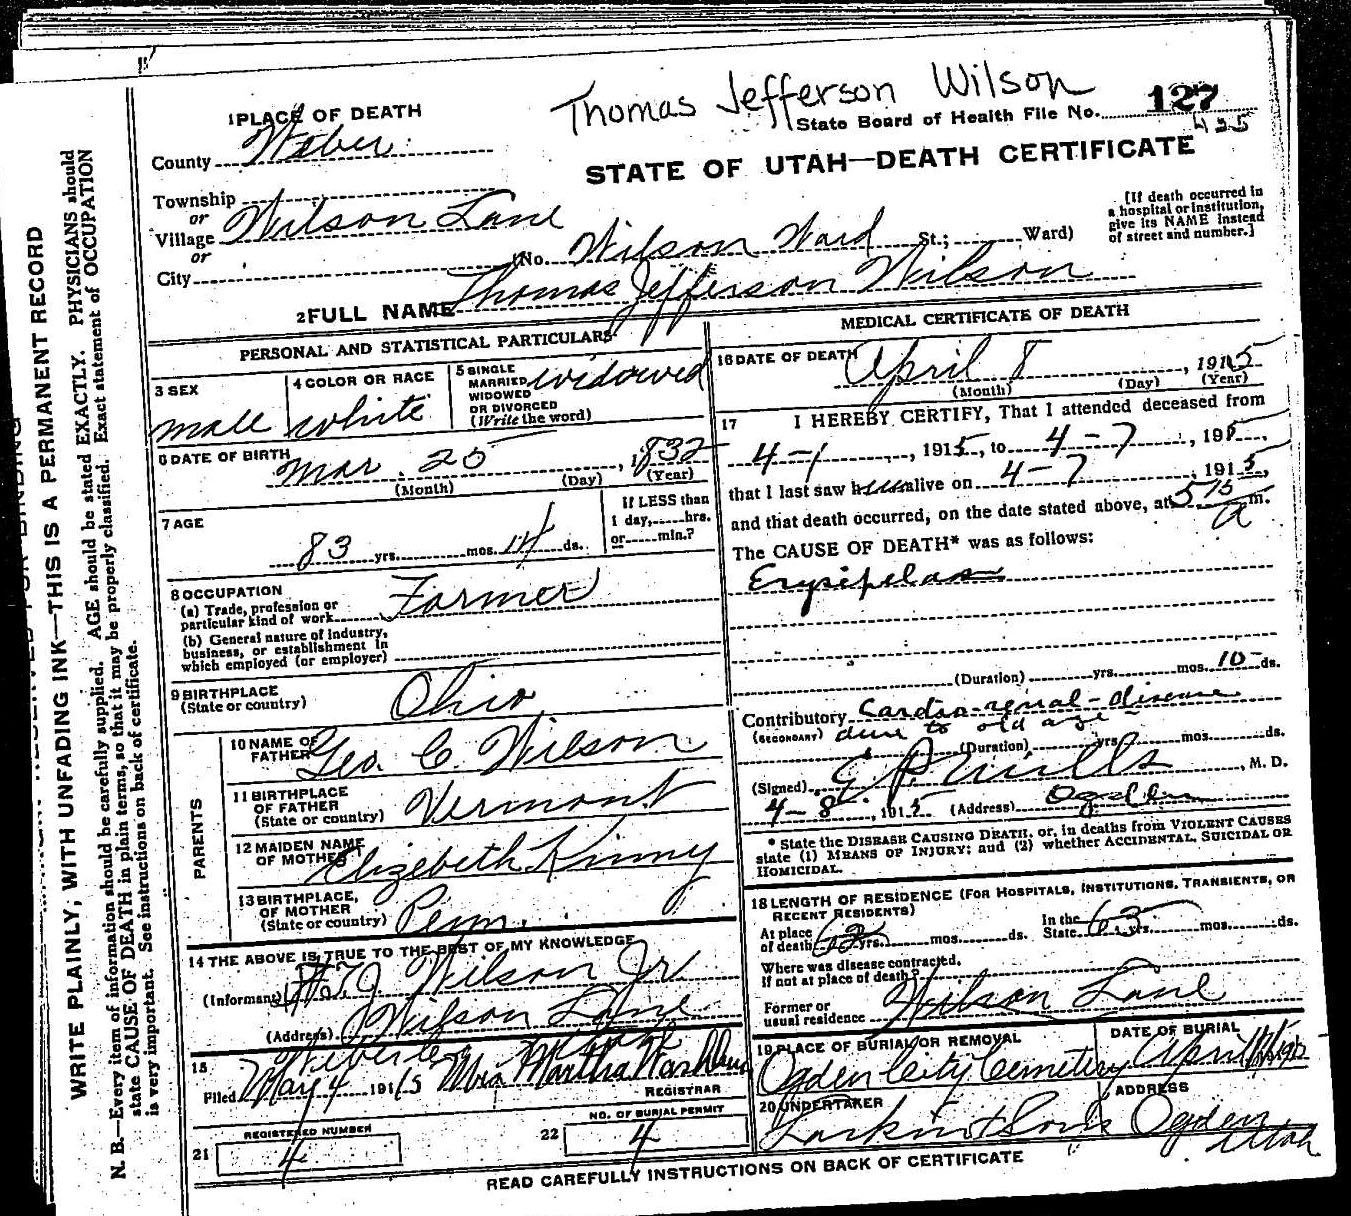 Thomas Jefferson Wilson
1 PLACE OF DEATH
State Board of Health File No. 127
435
County Weber
STATE OF UTAH—DEATH CERTIFICATE
Township
or
Village Wilson Lane
or
City
(No. Wilson Ward St.; Ward)
[If death occurred in
a hospital or institution,
give its NAME instead
of street and number.]
2 FULL NAME Thomas Jefferson Wilson
PERSONAL AND STATISTICAL PARTICULARS
3 SEX
male
4 COLOR OR RACE
white
5 SINGLE
MARRIED
WIDOWED
OR DIVORCED
(Write the word)
widowed
6 DATE OF BIRTH
Mar. 25, 1832
(Month) (Day) (Year)
7 AGE
83 yrs. mos. 14 ds.
If LESS than
1 day, hrs.
or min.?
8 OCCUPATION
(a) Trade, profession or
particular kind of work Farmer
(b) General nature of industry,
business, or establishment in
which employed (or employer)
9 BIRTHPLACE
(State or country)
Ohio
PARENTS
10 NAME OF
FATHER Geo. C. Wilson
11 BIRTHPLACE
OF FATHER
(State or country) Vermont
12 MAIDEN NAME
OF MOTHER Elizebeth Kinny
13 BIRTHPLACE,
OF MOTHER
(State or country) Penn.
14 THE ABOVE IS TRUE TO THE BEST OF MY KNOWLEDGE
(Informant) J Wilson Jr
(Address) Wilson Lane
15
Filed May 4 1915 Mrs Martha Washburn
REGISTRAR
REGISTERED NUMBER
21 4
NO. OF BURIAL PERMIT
22 4
MEDICAL CERTIFICATE OF DEATH
16 DATE OF DEATH
April 8, 1915
(Month) (Day) (Year)
17 I HEREBY CERTIFY, That I attended deceased from
4-1, 1915, to 4-7, 1915,
that I last saw him alive on 4-7 1915,
and that death occurred, on the date stated above, at 5 15 a m.
The CAUSE OF DEATH* was as follows:
Erysipelas
(Duration) yrs. mos. 10 ds.
Contributory Cardio-renal-disease
(SECONDARY) due to old age
(Duration) yrs. mos. ds.
(Signed) E P Mills, M. D.
4-8, 1915 (Address) Ogden
* State the DISEASE CAUSING DEATH, or, in deaths from VIOLENT CAUSES
state (1) MEANS OF INJURY; and (2) whether ACCIDENTAL, SUICIDAL OR
HOMICIDAL.
18 LENGTH OF RESIDENCE (FOR HOSPITALS, INSTITUTIONS, TRANSIENTS, OR
RECENT RESIDENTS)
At place
of death 62 yrs. mos. ds.
In the
State 63 yrs. mos. ds.
Where was disease contracted,
if not at place of death?
Former or
usual residence Wilson Lane
19 PLACE OF BURIAL OR REMOVAL
Ogden City Cemetery
DATE OF BURIAL
April 11 1915
20 UNDERTAKER
Larkin & Sons
ADDRESS
Ogden
Utah
READ CAREFULLY INSTRUCTIONS ON BACK OF CERTIFICATE
WRITE PLAINLY, WITH UNFADING INK—THIS IS A PERMANENT RECORD
N. B.—Every item of information should be carefully supplied. AGE should be stated EXACTLY. PHYSICIANS should
state CAUSE OF DEATH in plain terms, so that it may be properly classified. Exact statement of OCCUPATION
is very important. See instructions on back of certificate.